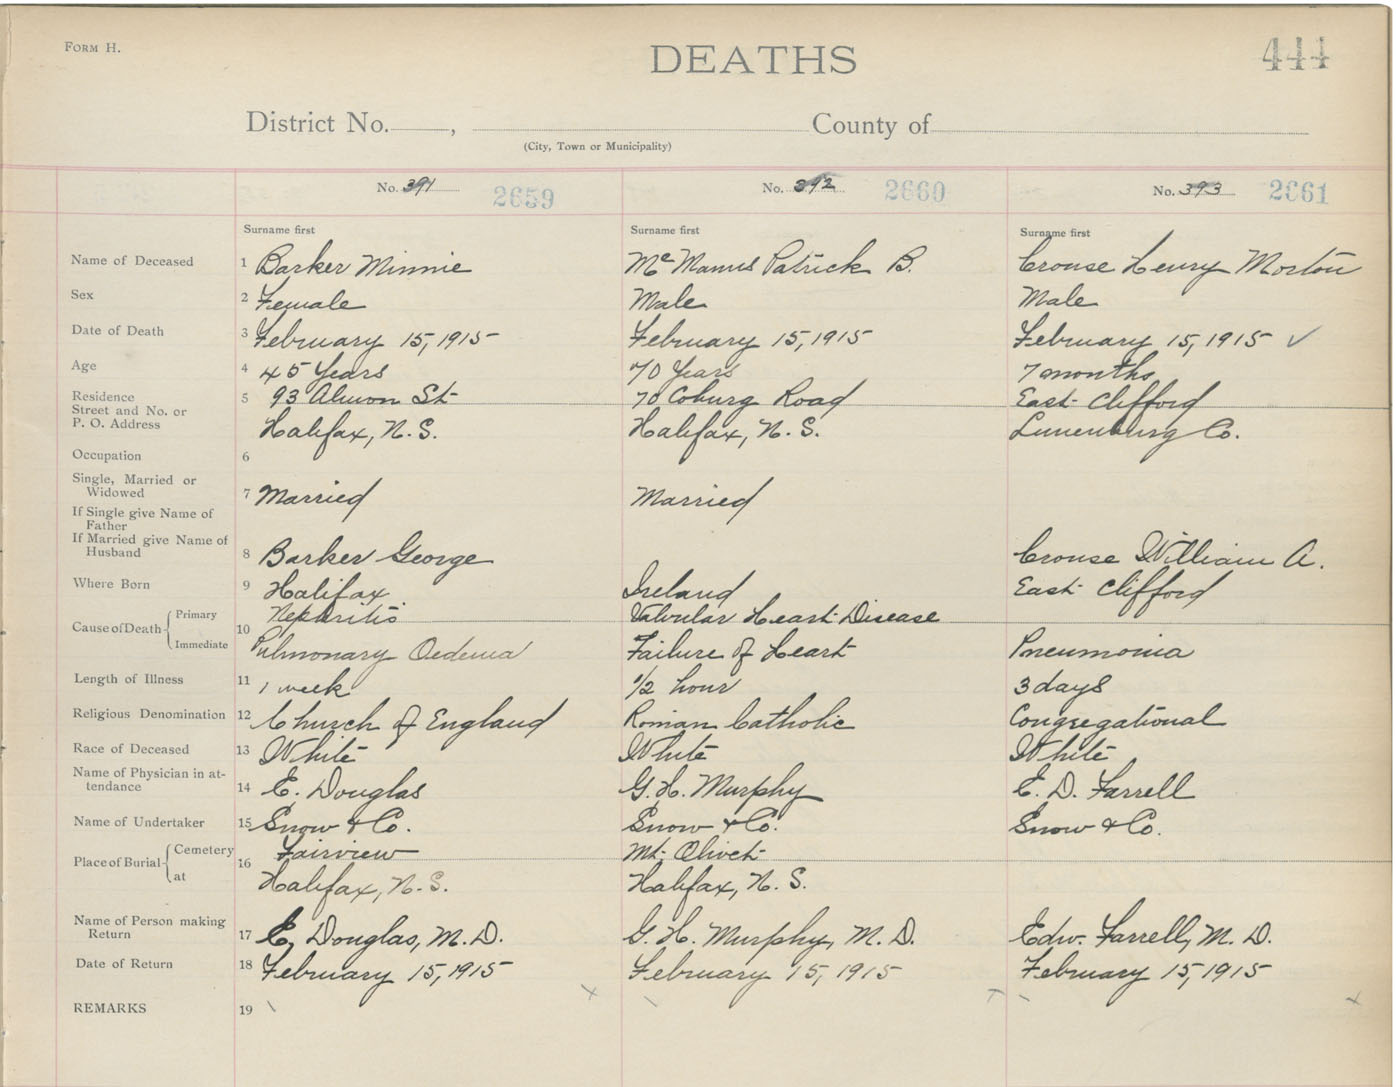 FORM H.
DEATHS
444
District No. , County of
(City, Town or Municipality)
No. 391 2659 No. 392 2660 No. 393 2661
Surname first Surname first Surname first
Name of Deceased 1 Barker Minnie McManus Patrick B. Crouse Henry Morton
Sex 2 Female Male Male
Date of Death 3 February 15, 1915 February 15, 1915 February 15, 1915 ✓
Age 4 45 Years 70 Years 7 months
Residence 5 93 Almon St 70 Coburg Road East Clifford
Street and No. or
P. O. Address Halifax, N.S. Halifax, N.S. Lunenburg Co.
Occupation 6
Single, Married or
Widowed 7 Married Married
If Single give Name of
Father
If Married give Name of
Husband 8 Barker George Crouse William A.
Where Born 9 Halifax Ireland East Clifford
Cause of Death Primary 10 Nephritis Valvular Heart Disease
Immediate Pulmonary Oedema Failure of Heart Pneumonia
Length of Illness 11 1 week 1/2 hour 3 days
Religious Denomination 12 Church of England Roman Catholic Congregational
Race of Deceased 13 White White White
Name of Physician in at-
tendance 14 E. Douglas G. H. Murphy E. D. Farrell
Name of Undertaker 15 Snow & Co. Snow & Co. Snow & Co.
Place of Burial Cemetery 16 Fairview Mt. Olivet
at Halifax, N.S. Halifax, N.S.
Name of Person making
Return 17 E. Douglas, M.D. G. H. Murphy, M.D. Edw. Farrell, M.D.
Date of Return 18 February 15, 1915 February 15, 1915 February 15, 1915
REMARKS 19